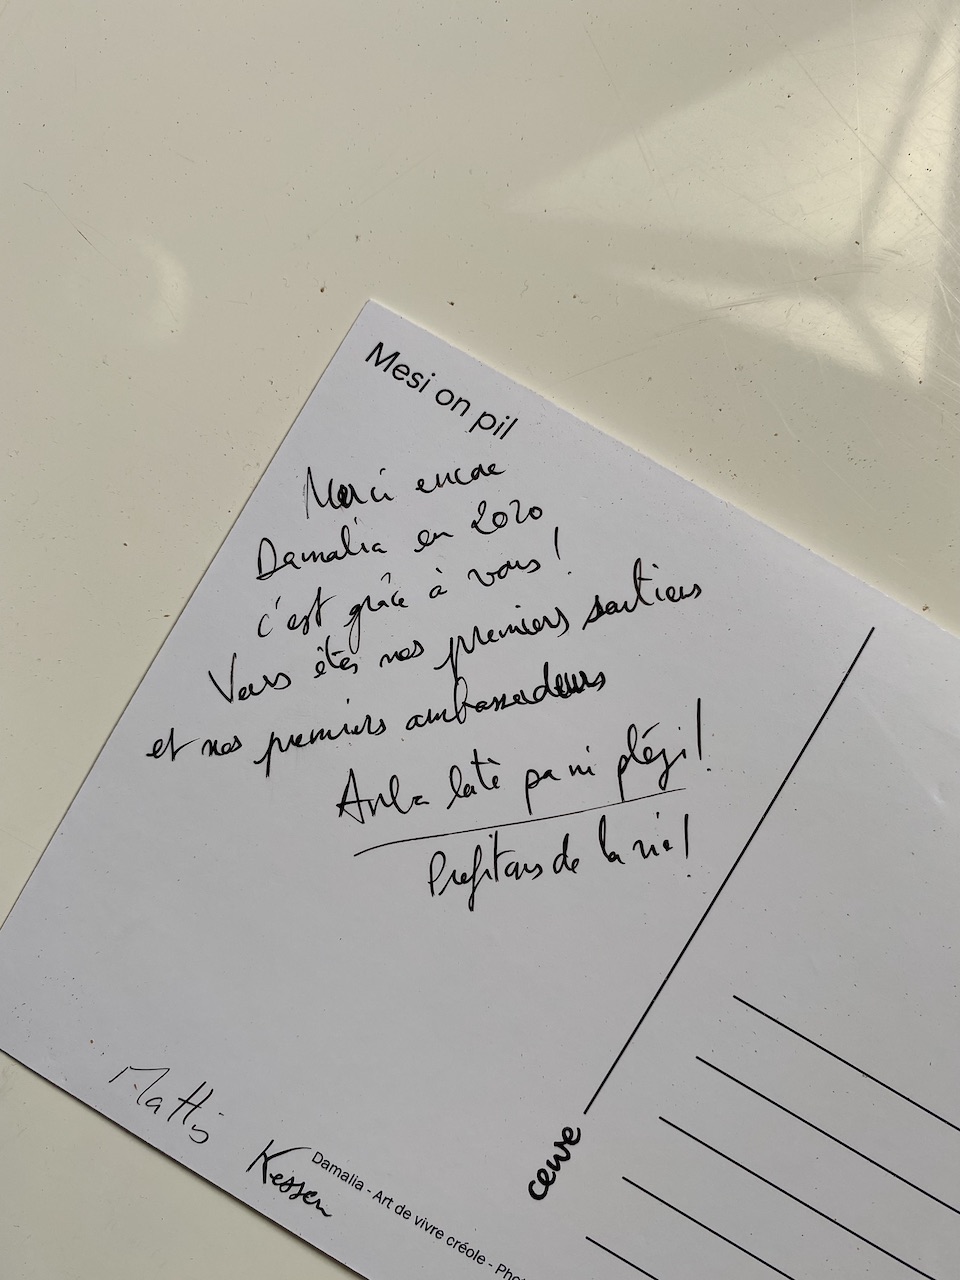 Mesi on pil
Merci encore
Damalia en 2020
c'est grâce à vous !
Vous êtes nos premiers soutiens
et nos premiers ambassadeurs
Anba latè pa ni plézi !
Profitons de la vie !
Mattis
Kessen
cewe
Damalia - Art de vivre créole -